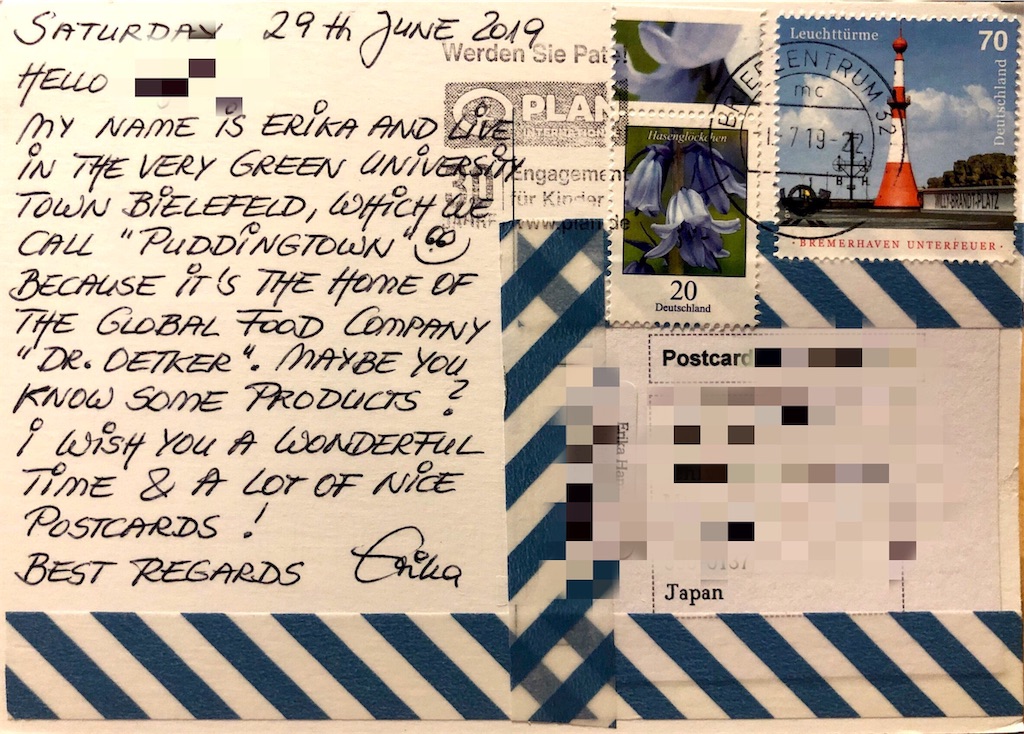 SATURDAY 29TH JUNE 2019
HELLO
MY NAME IS ERIKA AND LIVE
IN THE VERY GREEN UNIVERSITY
TOWN BIELEFELD, WHICH WE
CALL "PUDDINGTOWN"
BECAUSE IT'S THE HOME OF
THE GLOBAL FOOD COMPANY
"DR. OETKER". MAYBE YOU
KNOW SOME PRODUCTS ?
I WISH YOU A WONDERFUL
TIME & A LOT OF NICE
POSTCARDS !
BEST REGARDS Erika
Werden Sie Pate!
PLAN
INTERNATIONAL
Engagement
für Kinder
www.plan.de
Hasenglöckchen
20
Deutschland
BRIEFZENTRUM 32
mc
7 19-22
Leuchttürme
70
Deutschland
WILLY-BRANDT-PLATZ
· BREMERHAVEN UNTERFEUER ·
Postcard
Erika Han
Japan